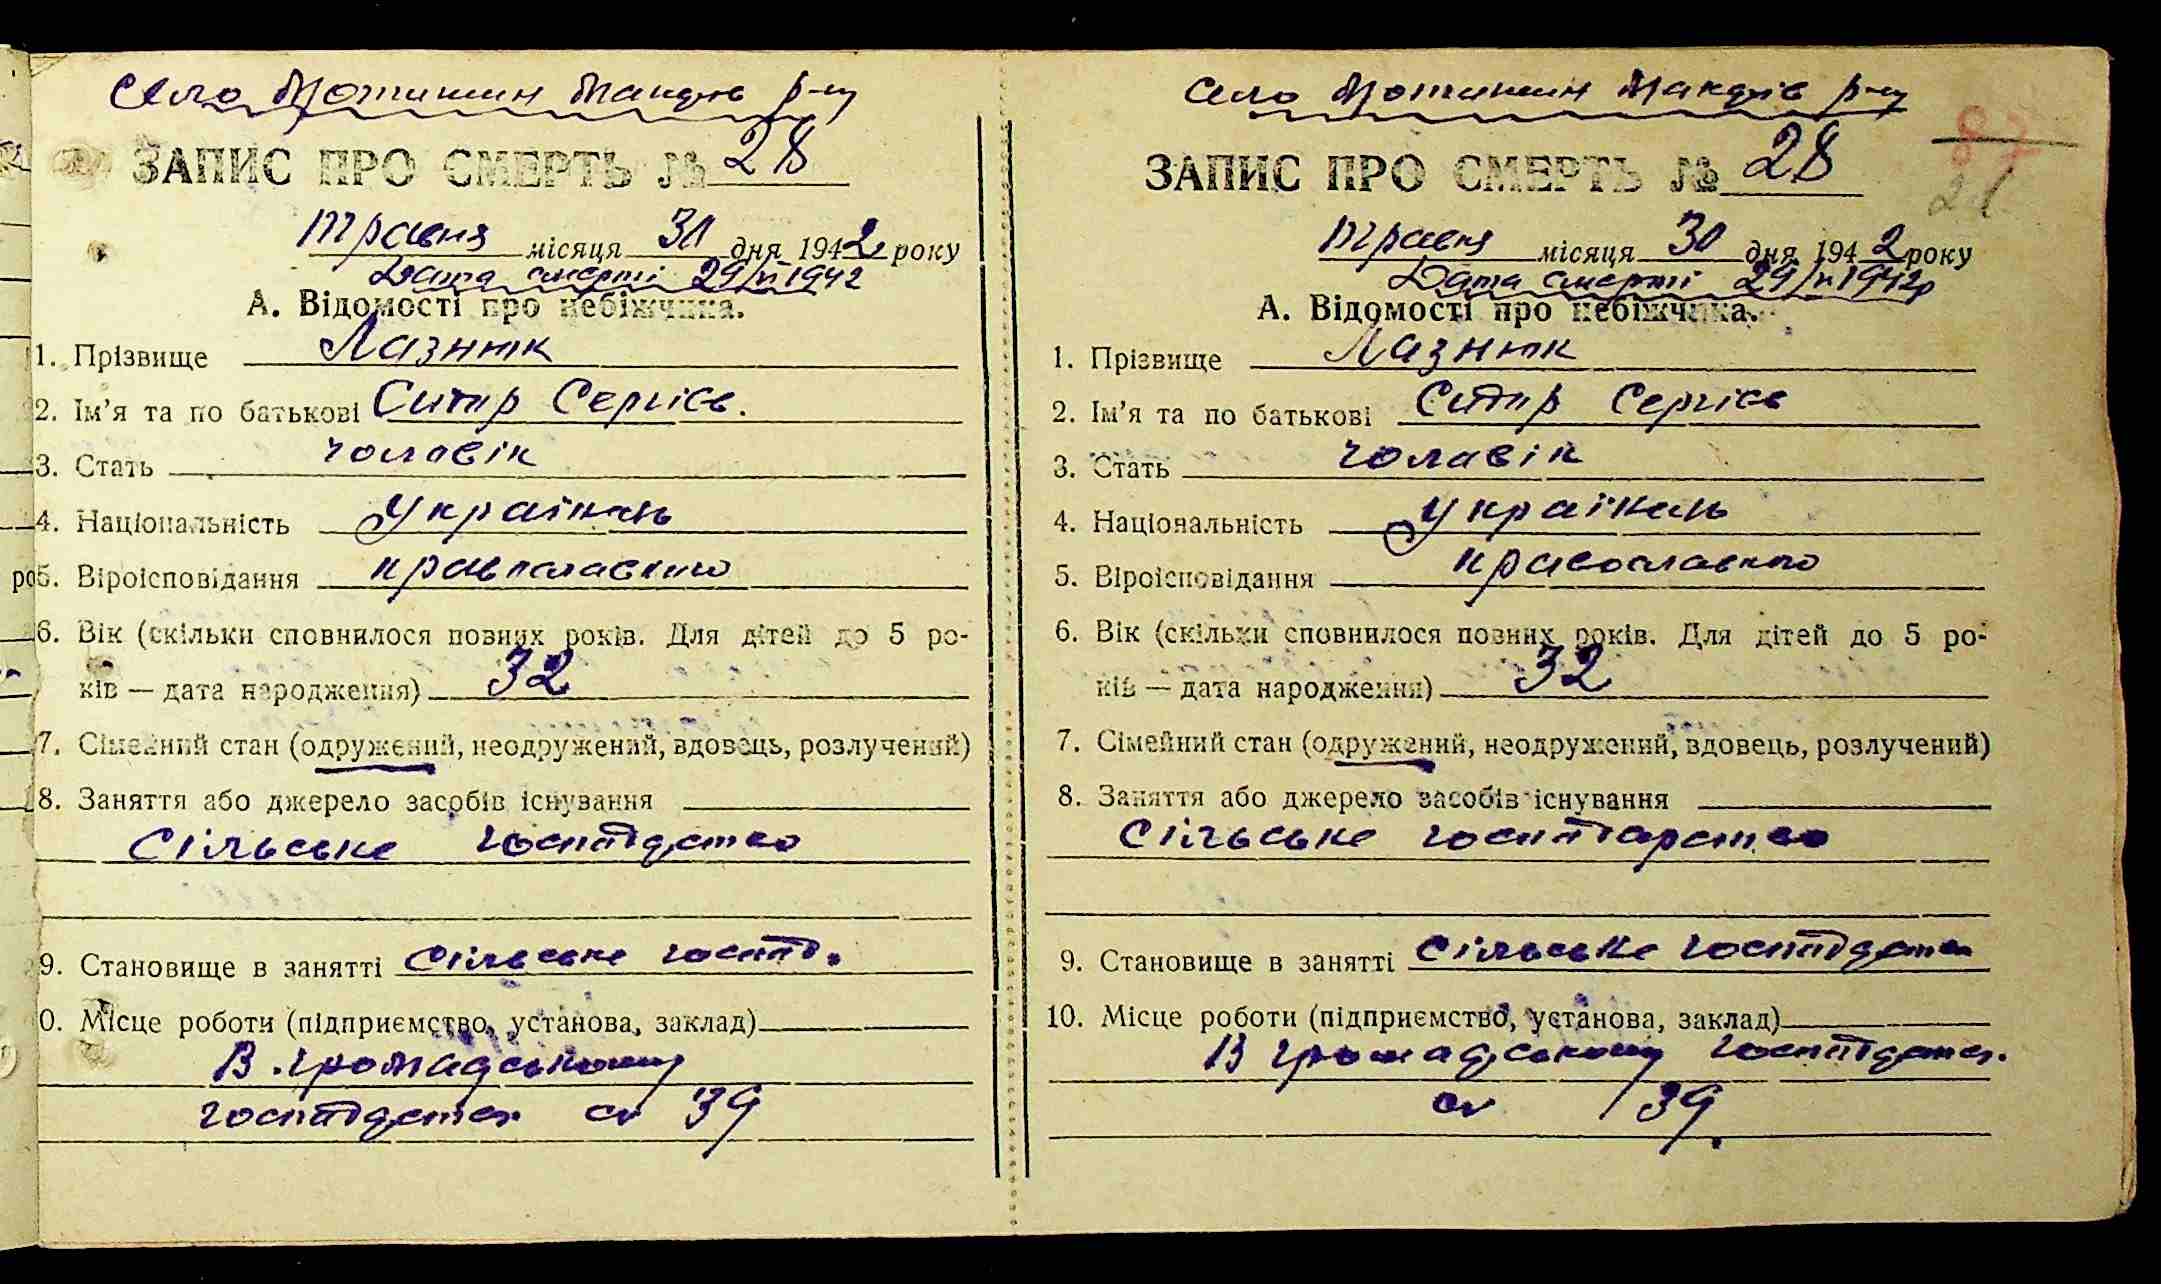 Село Мотижин Макарів р-ну
ЗАПИС ПРО СМЕРТЬ № 28
Травня місяця 30 дня 1942 року
Дата смерті 29/V 1942
А. Відомості про небіжчика.
1. Прізвище Лазнюк
2. Ім'я та по батькові Сидір Сергієв.
3. Стать чоловік
4. Національність Українець
5. Віроісповідання православного
6. Вік (скільки сповнилося повних років. Для дітей до 5 ро-
ків — дата народження) 32
7. Сімейний стан (одружений, неодружений, вдовець, розлучений)
8. Заняття або джерело засобів існування
Сільське
9. Становище в занятті Сільське господ.
0. Місце роботи (підприємство, установа, заклад)
В громадському
39
Село Мотижин Макарів р-ну
ЗАПИС ПРО СМЕРТЬ № 28
Травня місяця 30 дня 1942 року
Дата смерті 29/V 1942р
А. Відомості про небіжчика.
1. Прізвище Лазнюк
2. Ім'я та по батькові Сидір Сергієв
3. Стать чоловік
4. Національність Українець
5. Віроісповідання православного
6. Вік (скільки сповнилося повних років. Для дітей до 5 ро-
ків — дата народження) 32
7. Сімейний стан (одружений, неодружений, вдовець, розлучений)
8. Заняття або джерело засобів існування
Сільське господарство
9. Становище в занятті Сільське
10. Місце роботи (підприємство, установа, заклад)
В громадському
39.